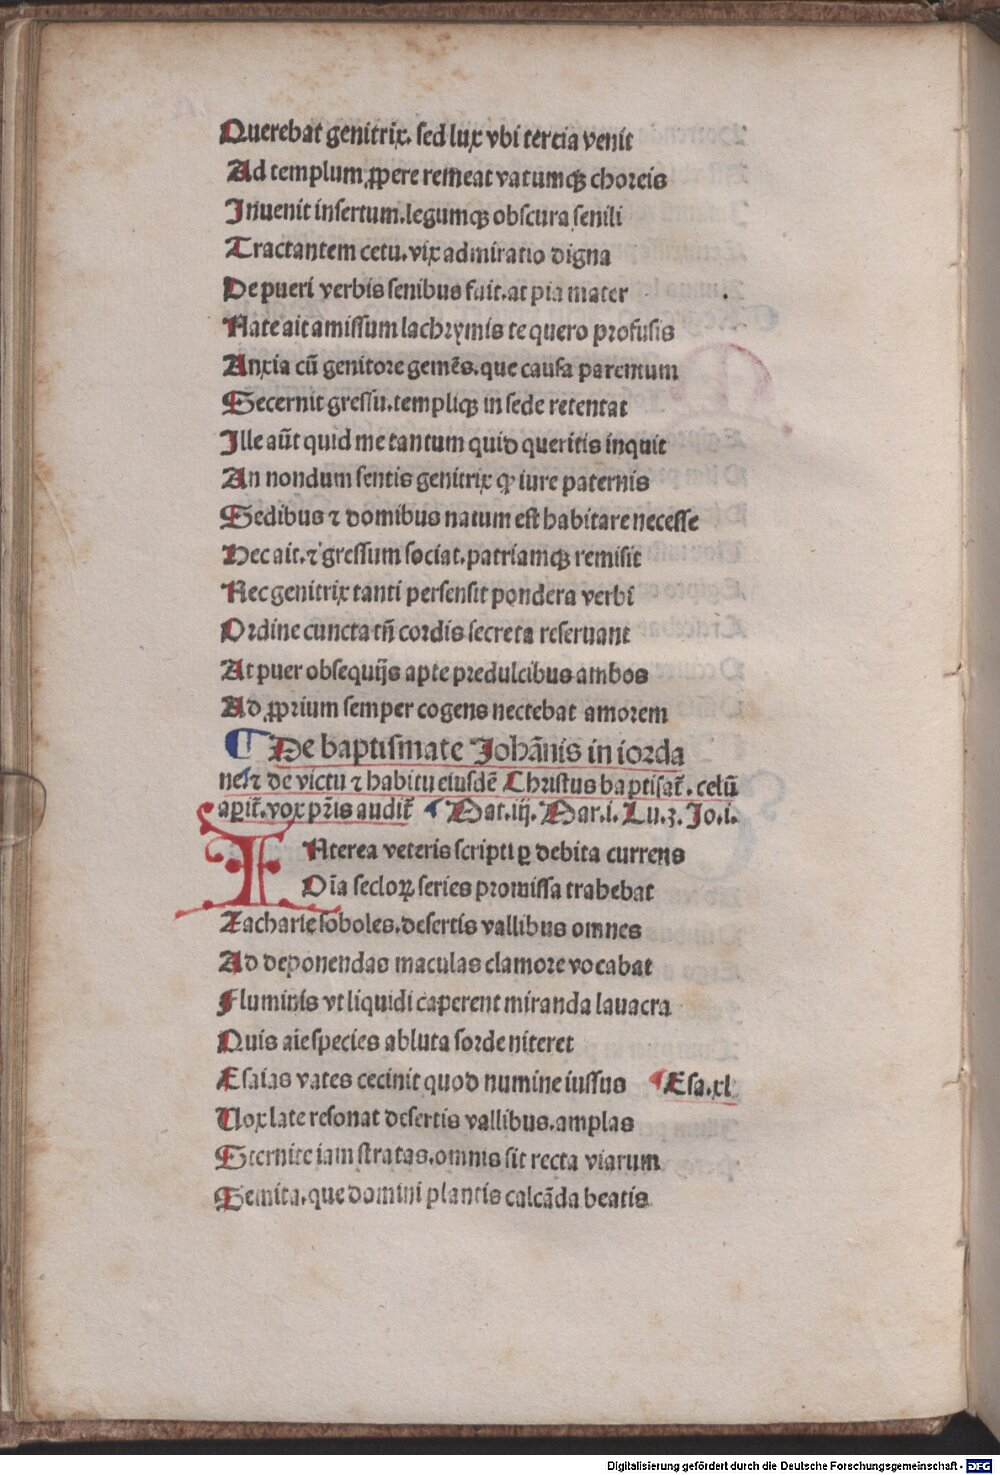 Querebat genitrix. sed lux vbi tercia venit
Ad templum ꝓpere remeat vatumqꝫ choreis
Inuenit insertum. legumqꝫ obscura senili
Tractantem cetu. vix admiratio digna
De pueri verbis senibus fuit. at pia mater
Nate ait amissum lachrymis te quero profusis
Anxia cū genitore gemēs. que causa parentum
Secernit gressu. templiqꝫ in sede retentat
Ille aūt quid me tantum quid queritis inquit
An nondum sentis genitrix ꝙ iure paternis
Sedibus ⁊ domibus natum est habitare necesse
Hec ait. ⁊ gressum sociat. patriamqꝫ remisit
Nec genitrix tanti persensit pondera verbi
Ordine cuncta tn̄ cordis secreta reseruant
At puer obsequijs apte predulcibus ambos
Ad ꝓprium semper cogens nectebat amorem
¶ De baptismate Johānis in iorda
ne ⁊ de victu ⁊ habitu eiusdē Christus baptisat᷑. celū
aꝑit᷑. vox pr̄is audit᷑ ¶ Mat. iij. Mar. i. Lu. 3. Jo. i.
INterea veteris scripti ꝑ debita currens
Oīa secloꝝ series promissa trahebat
Zacharie soboles. desertis vallibus omnes
Ad deponendas maculas clamore vocabat
Fluminis vt liquidi caperent miranda lauacra
Quis aīe species abluta sorde niteret
Esaias vates cecinit quod numine iussus ¶ Esa. xl
Uox late resonat desertis vallibus. amplas
Sternite iam stratas. omnis sit recta viarum
Semita. que domini plantis calcāda beatis
Digitalisierung gefördert durch die Deutsche Forschungsgemeinschaft - DFG